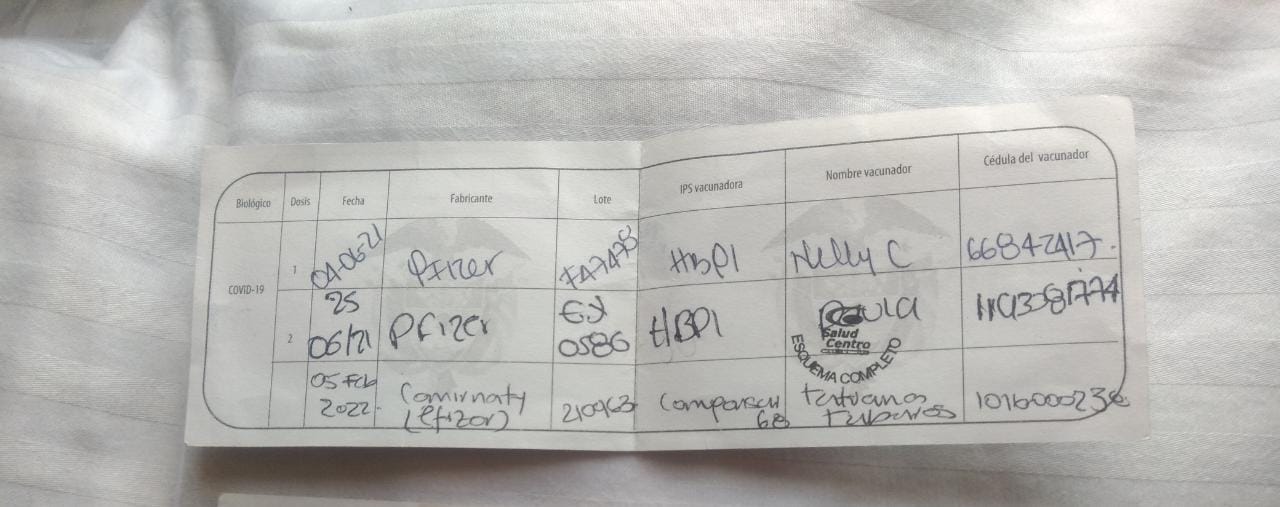 Biológico Dosis Fecha Fabricante Lote IPS vacunadora Nombre vacunador Cédula del vacunador
COVID-19
1 04-06-21 Pfizer FA7478 HBPI Nelly C 66842417.
2 25 06/21 Pfizer EX 0586 HBPI Paula
Salud
Centro
ESQUEMA COMPLETO
05 Feb 2022. Comirnaty (Pfizer) 210963 68